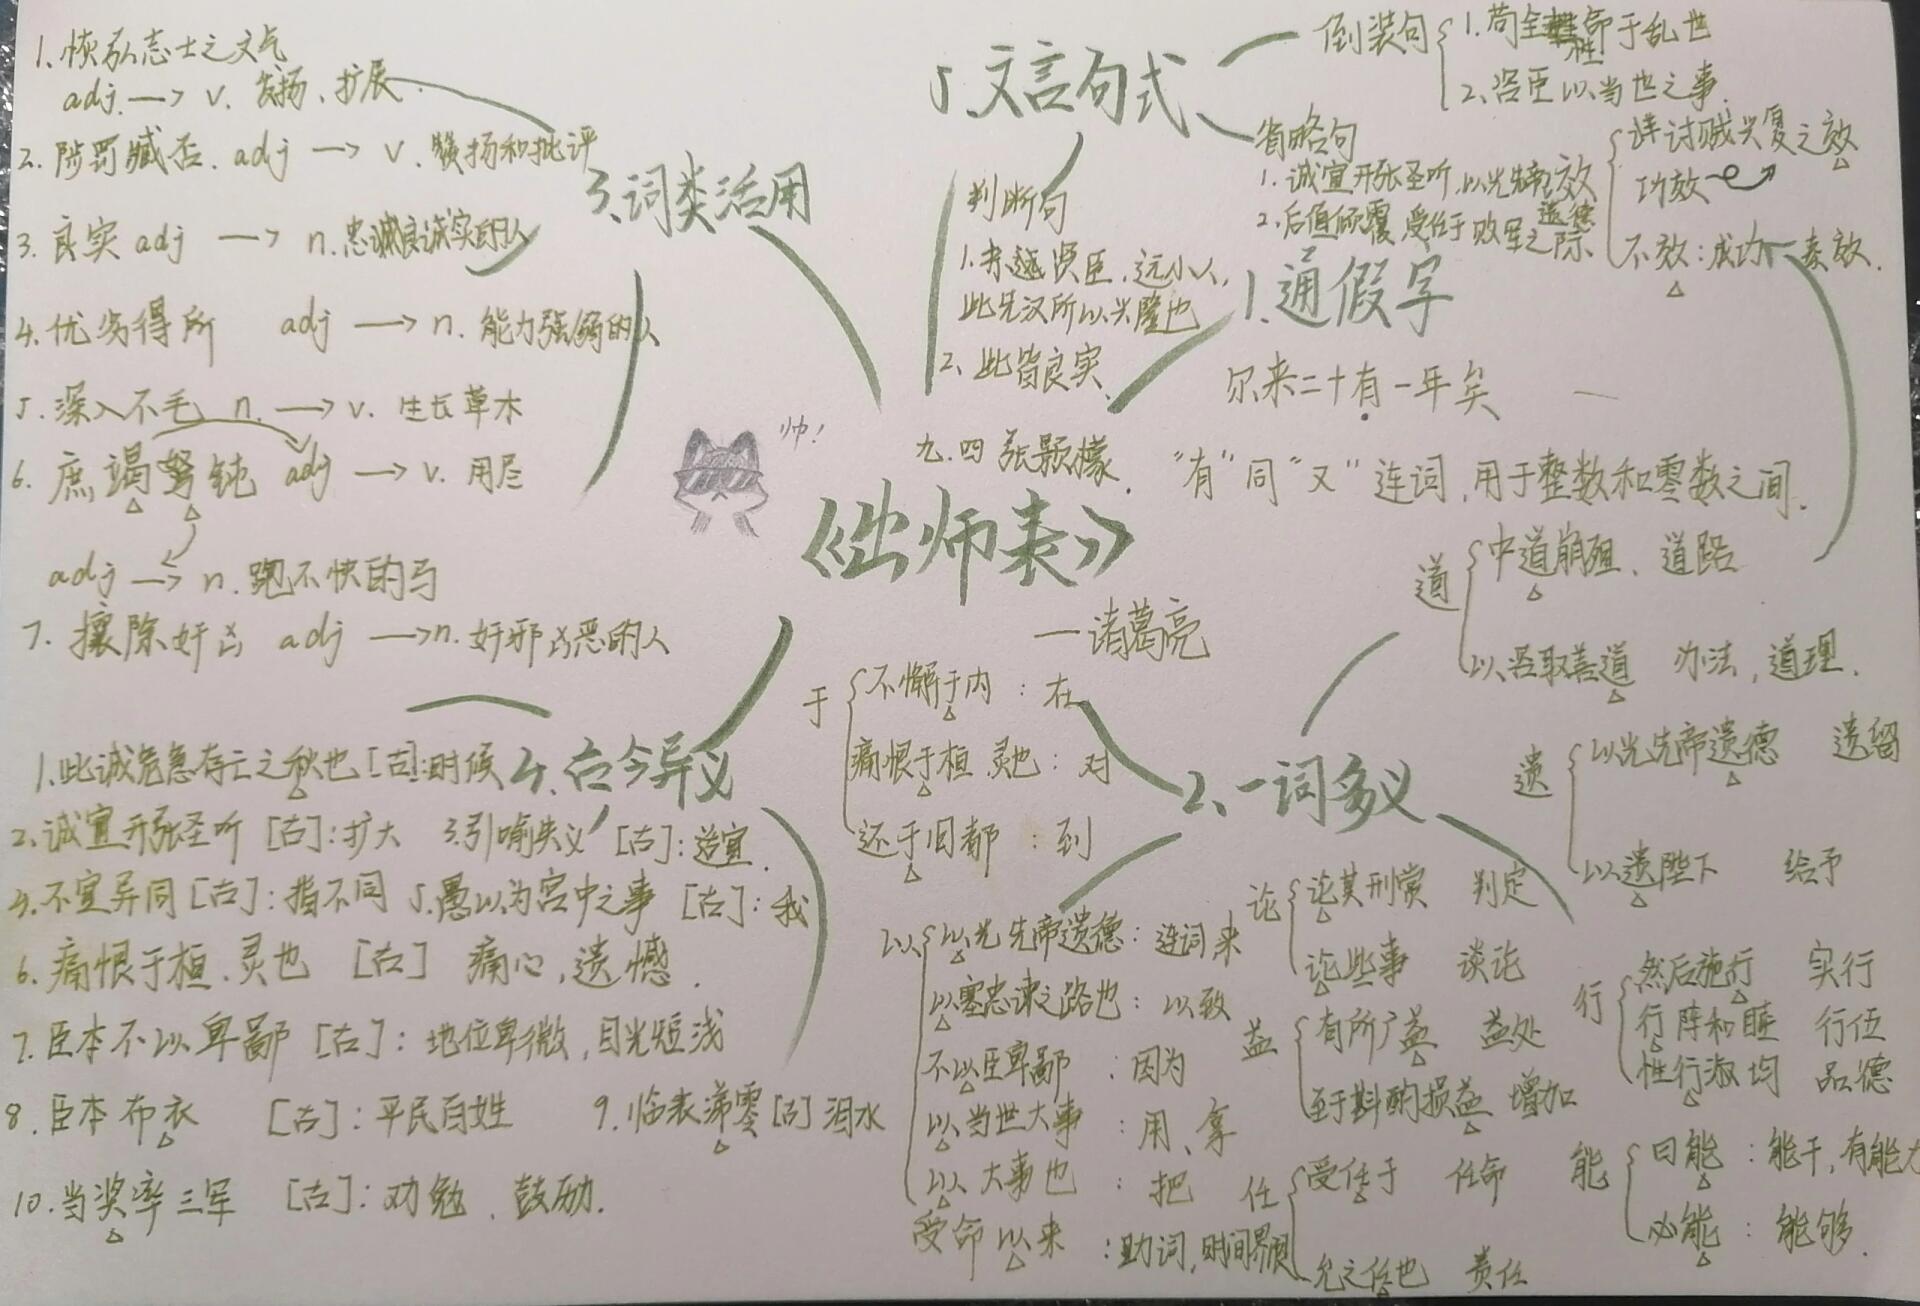 《出师表》
—诸葛亮
九.四 张颢檬
帅!
1.通假字
尔来二十有一年矣
"有"同"又"连词,用于整数和零数之间.
2、一词多义
效
详讨贼兴复之效
功效
不效:成功 奏效.
道
中道崩殂、道路
以咨取善道 办法,道理.
遗
以光先帝遗德 遗留
以遗陛下 给予
于
不懈于内:在
痛恨于桓.灵也:对
还于旧都:到
以
以光先帝遗德:连词来
以塞忠谏之路也:以致
不以臣卑鄙:因为
以当世大事:用、拿
以大事也:把
受命以来:助词,时间界限
论
论其刑赏 判定
论些事 谈论
益
有所广益 益处
至于斟酌损益 增加
任
受任于 任命
允之任也 责任
行
然后施行 实行
行阵和睦 行伍
性行淑均 品德
能
曰能:能干,有能力
必能:能够.
3、词类活用
1.恢弘志士之气
adj.→v.发扬、扩展.
2.陟罚臧否.adj→v.赞扬和批评
3.良实adj→n.忠诚良诚实的人
4.优劣得所 adj→n.能力强弱的人
5.深入不毛 n.→v.生长草木
6.庶竭驽钝 adj→v.用尽
adj→n.跑不快的马
7.攘除奸凶 adj→n.奸邪凶恶的人
4.古今异义
1.此诚危急存亡之秋也[古]:时候
2.诚宜开张圣听[古]:扩大 3.引喻失义[古]:适宜.
4.不宜异同[古]:指不同 5.愚以为宫中之事[古]:我
6.痛恨于桓.灵也[古]痛心,遗憾.
7.臣本不以卑鄙[古]:地位卑微,目光短浅
8.臣本布衣[古]:平民百姓 9.临表涕零[古]泪水
10.当奖率三军[古]:劝勉、鼓励.
5.文言句式
倒装句
1.苟全性命于乱世
2.咨臣以当世之事.
省略句
1.诚宜开张圣听,以光先帝遗德
2.后值倾覆,受任于败军之际
判断句
1.亲贤臣,远小人,
此先汉所以兴隆也
2、此皆良实